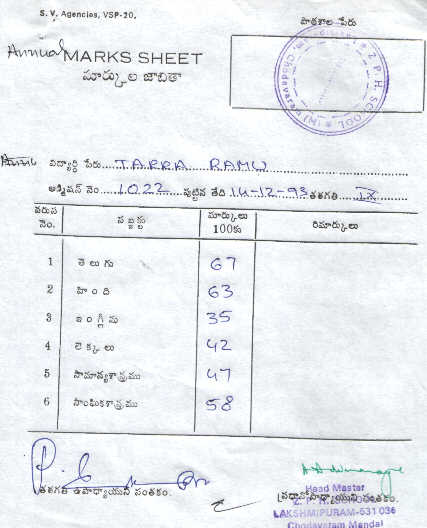 S. V. Agencies, VSP-20.
పాఠశాల పేరు
Annual MARKS SHEET
మార్కుల జాబితా
Z. P. H. SCHOOL
Chodavaram (M)
విద్యార్థి పేరు TARRA RAMU
అడ్మిషన్ నెం. 1022 పుట్టిన తేది 14-12-93 తరగతి IX
వరుస నెం. సబ్జక్టు మార్కులు 100కు రిమార్కులు
1 తెలుగు 67
2 హింది 63
3 ఇంగ్లీషు 35
4 లెక్కలు 42
5 సామాన్యశాస్త్రము 47
6 సాంఘికశాస్త్రము 58
తరగతి ఉపాధ్యాయుని సంతకం.
ప్రధానోపాధ్యాయుని సంతకం.
Head Master
Z. P. H. SCHOOL
LAKSHMIPURAM-531 036
Chodavaram Mandal